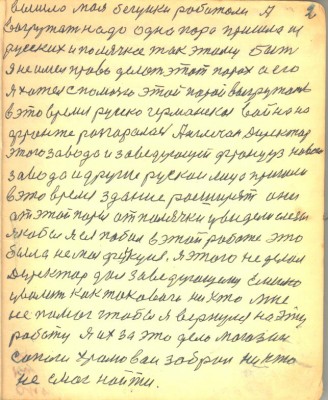 2
вышло моя бегушки работали я
выгрутат надо одно пора пришло из
русских и полячка так этому быт
я не имел право делат этот порах а его
я хотел с помощю этой порой выгрутать
в это время русско германская война на
фронте разгаралася Англичан Директор
этого завода и заведующей француз нового
завода и другие руской лицо пришли
в это время здание расширят они
от этой поры от полячки увидели слезы
якобы я ея побил в этой работе это
была не моя фикция. я этого не делал
Директор дал заведующему
уволит как таковаго ни хто мне
не помог чтобы я вернулся на эту
работу я их за это дело магазин
сапоги хромовои забрал ни кто
не смог найти.